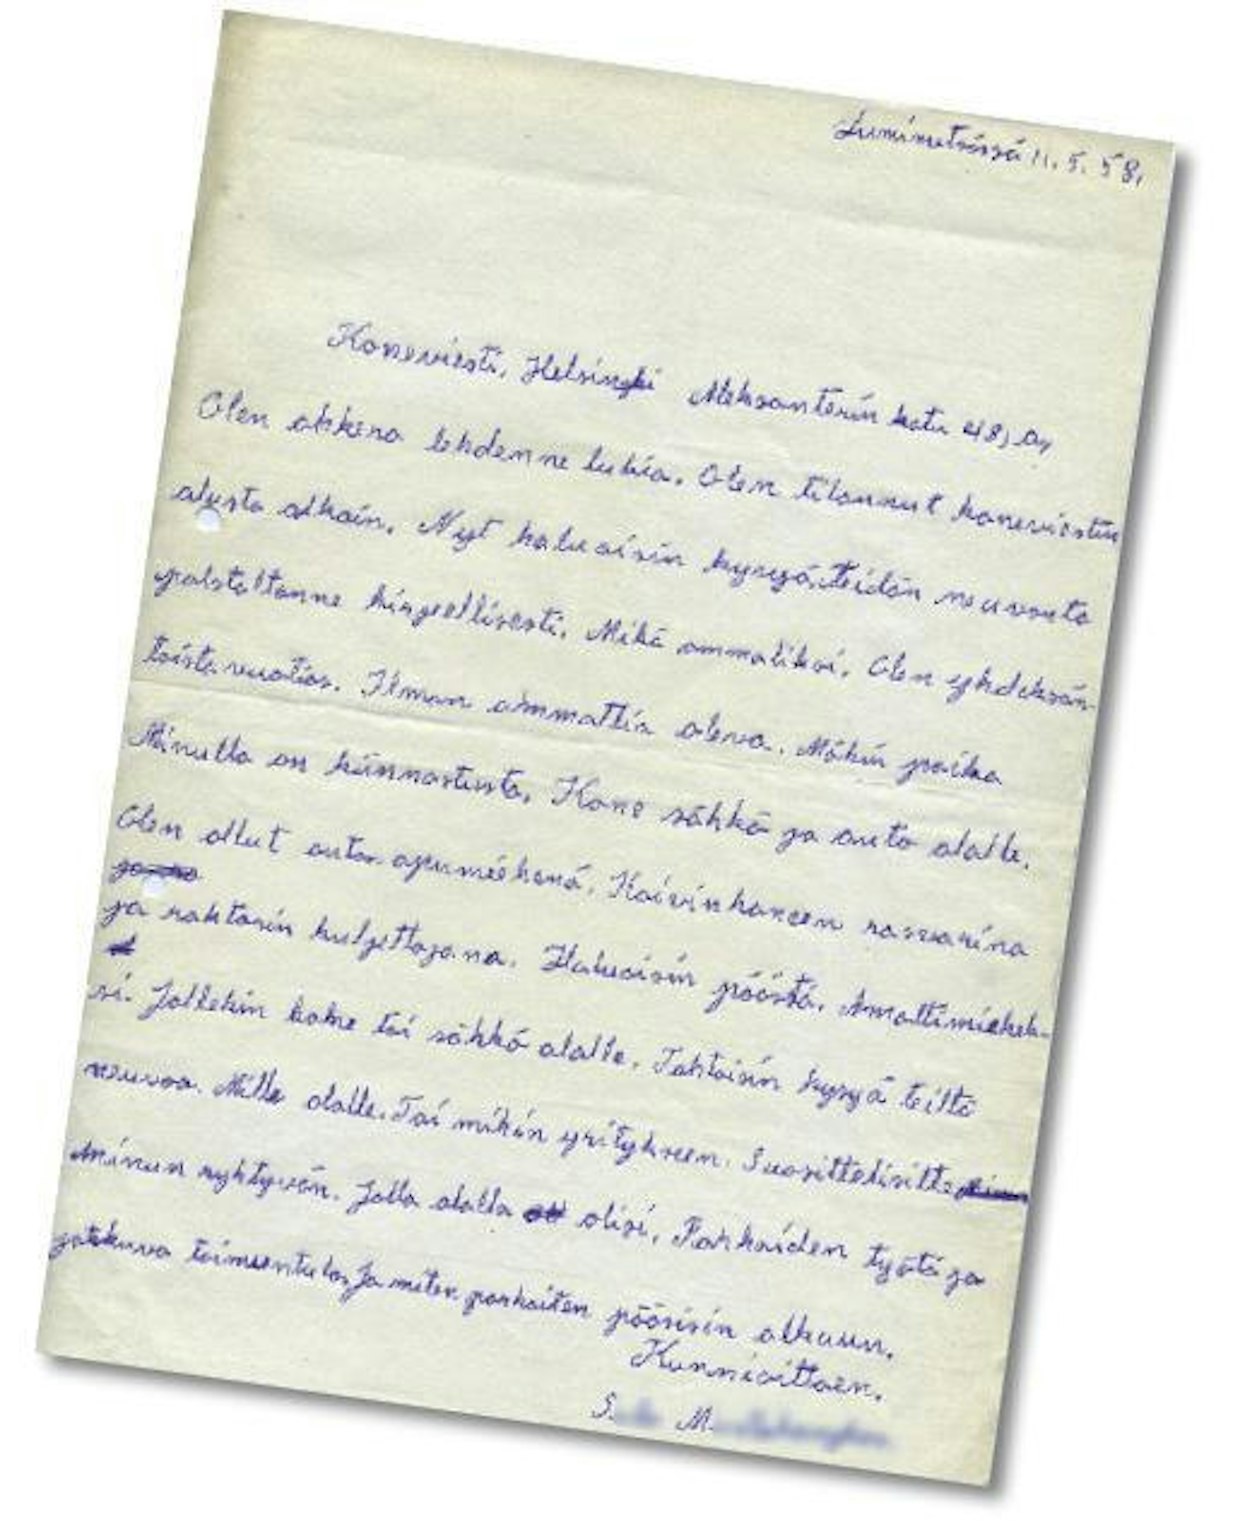 Lumimetsässä 11. 5. 58.
Koneviesti, Helsinki Aleksanterin katu 48, A,
Olen ahkera lehdenne lukia. Olen tilannut koneviestin
alusta alkain. Nyt haluaisin kysyä, teidän neuvonta
palstaltanne kirjeellisesti. Mikä ammatiksi. Olen yhdeksän-
toista vuotias. Ilman ammattia oleva. Mökin poika
Minulla on kiinnostusta. Kone sähkö ja auto alalle.
Olen ollut auton apumiehenä. Kaivinkoneen rasvarina
ja raktorin kuljettajana. Haluaisin päästä. Amattimiehek-
si. Jollekin kone tai sähkö alalle. Tahtoisin kysyä teiltä
neuvoa. Mille alalle. Tai mihin yritykseen. Suosittelisitte
minun ryhtyvän. Jolla alalla olisi. Parhaiden työtä ja
jatkuva toimeentulo, Ja miten parhaiten pääsisin alkuun.
Kunnioittaen.
S. M.